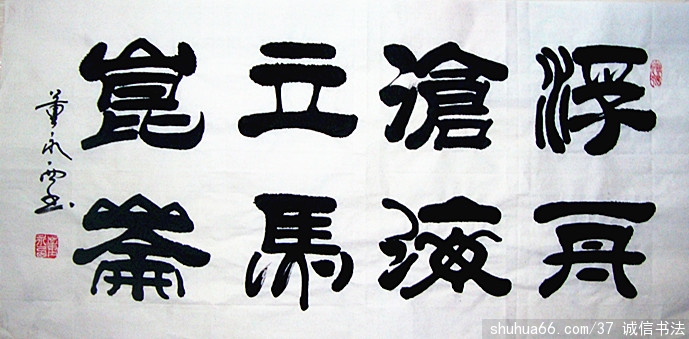 浮舟
滄海
立馬
崑崙
董永西书
shuhua66.com/37 诚信书法